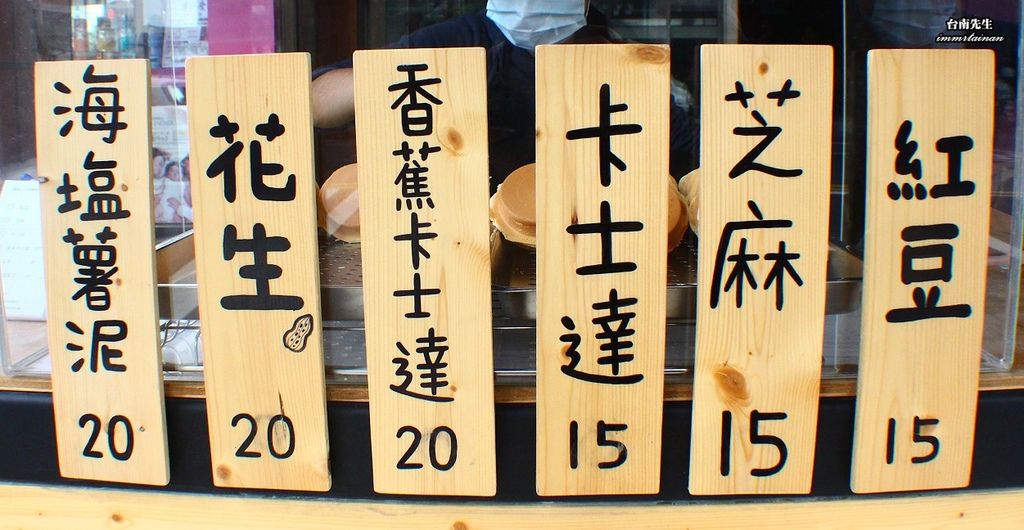 海塩薯泥
20
花生
20
香蕉卡士達
20
卡士達
15
芝麻
15
紅豆
15
台南先生
immrtainan